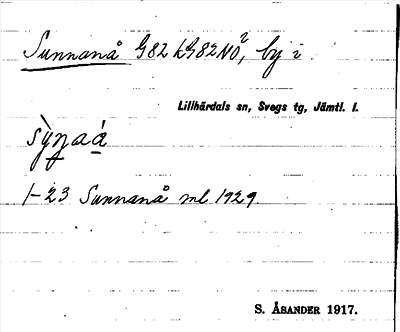 Sunnanå G82 kG82NO², by i
Lillhärdals sn, Svegs tg, Jämtl. l.
1-23 Sunnanå ml 1929
S. ÅSANDER 1917.